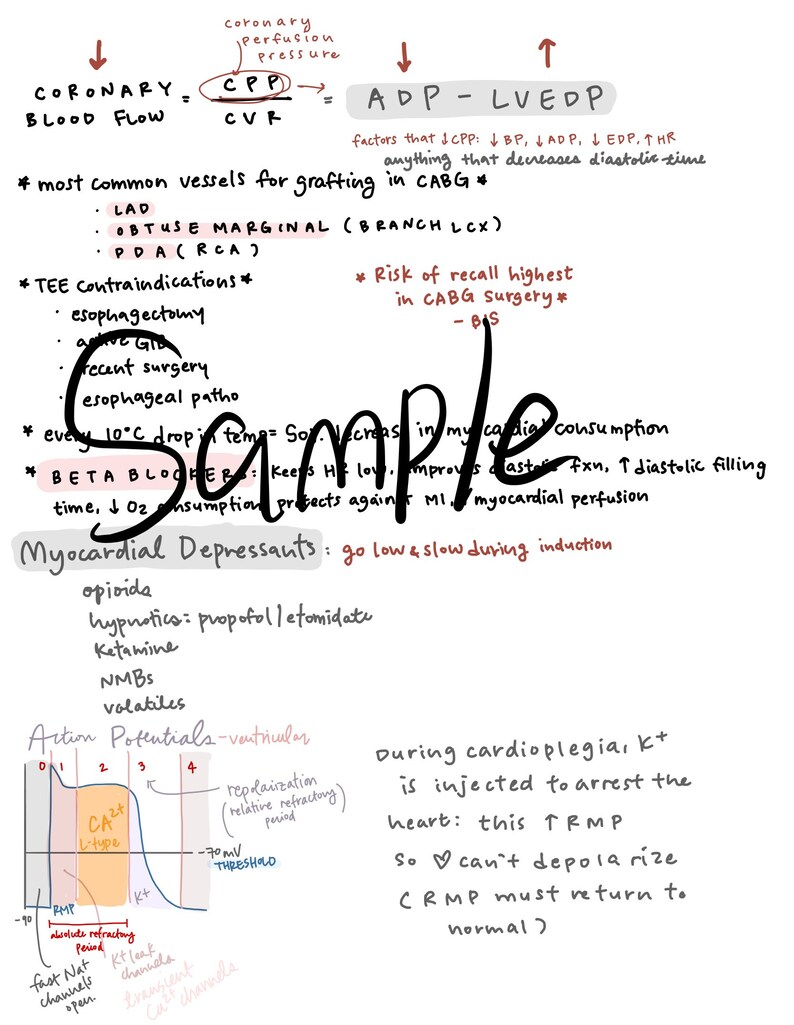 coronary
perfusion
pressure
↓ ↓ ↑
CORONARY BLOOD FLOW = CPP / CVR → = ADP - LVEDP
factors that ↓ CPP: ↓ BP, ↓ ADP, ↓ EDP, ↑ HR
anything that decreases diastolic time
* most common vessels for grafting in CABG *
· LAD
· OBTUSE MARGINAL (BRANCH LCX)
· PDA (RCA)
* TEE contraindications *
· esophagectomy
· active GIB
· recent surgery
· esophageal patho
* Risk of recall highest
in CABG surgery *
- BIS
Sample
* every 10°C drop in temp = 50% decrease in myocardial consumption
* BETA BLOCKERS: keeps HR low, improves diastolic fxn, ↑ diastolic filling
time, ↓ O2 consumption, protects against MI, myocardial perfusion
Myocardial Depressants: go low & slow during induction
opioids
hypnotics: propofol/etomidate
ketamine
NMBs
volatiles
Action Potentials - ventricular
0 1 2 3 4
CA2+
L-type
K+
repolarization
(relative refractory
period)
-70 mV
THRESHOLD
-90
RMP
absolute refractory
period
fast Na+
channels
open
K+ leak
channels
transient
Ca2+ channels
During cardioplegia, K+
is injected to arrest the
heart: this ↑ RMP
so ♡ can't depolarize
(RMP must return to
normal)